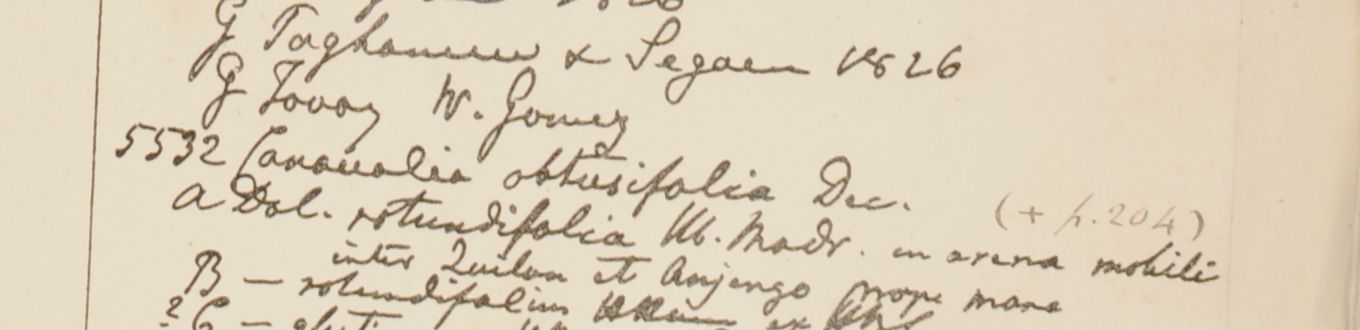 G Taghanuu & Segaen 1826
G Tovoy W. Gomez
5532 Canavalia obtusifolia Dec.
(+ p. 204)
a Dol. rotundifolia Hb. Madr. in arena mobili
inter Quilon et Anjengo prope mare
B — rotundifolius ex
? C —